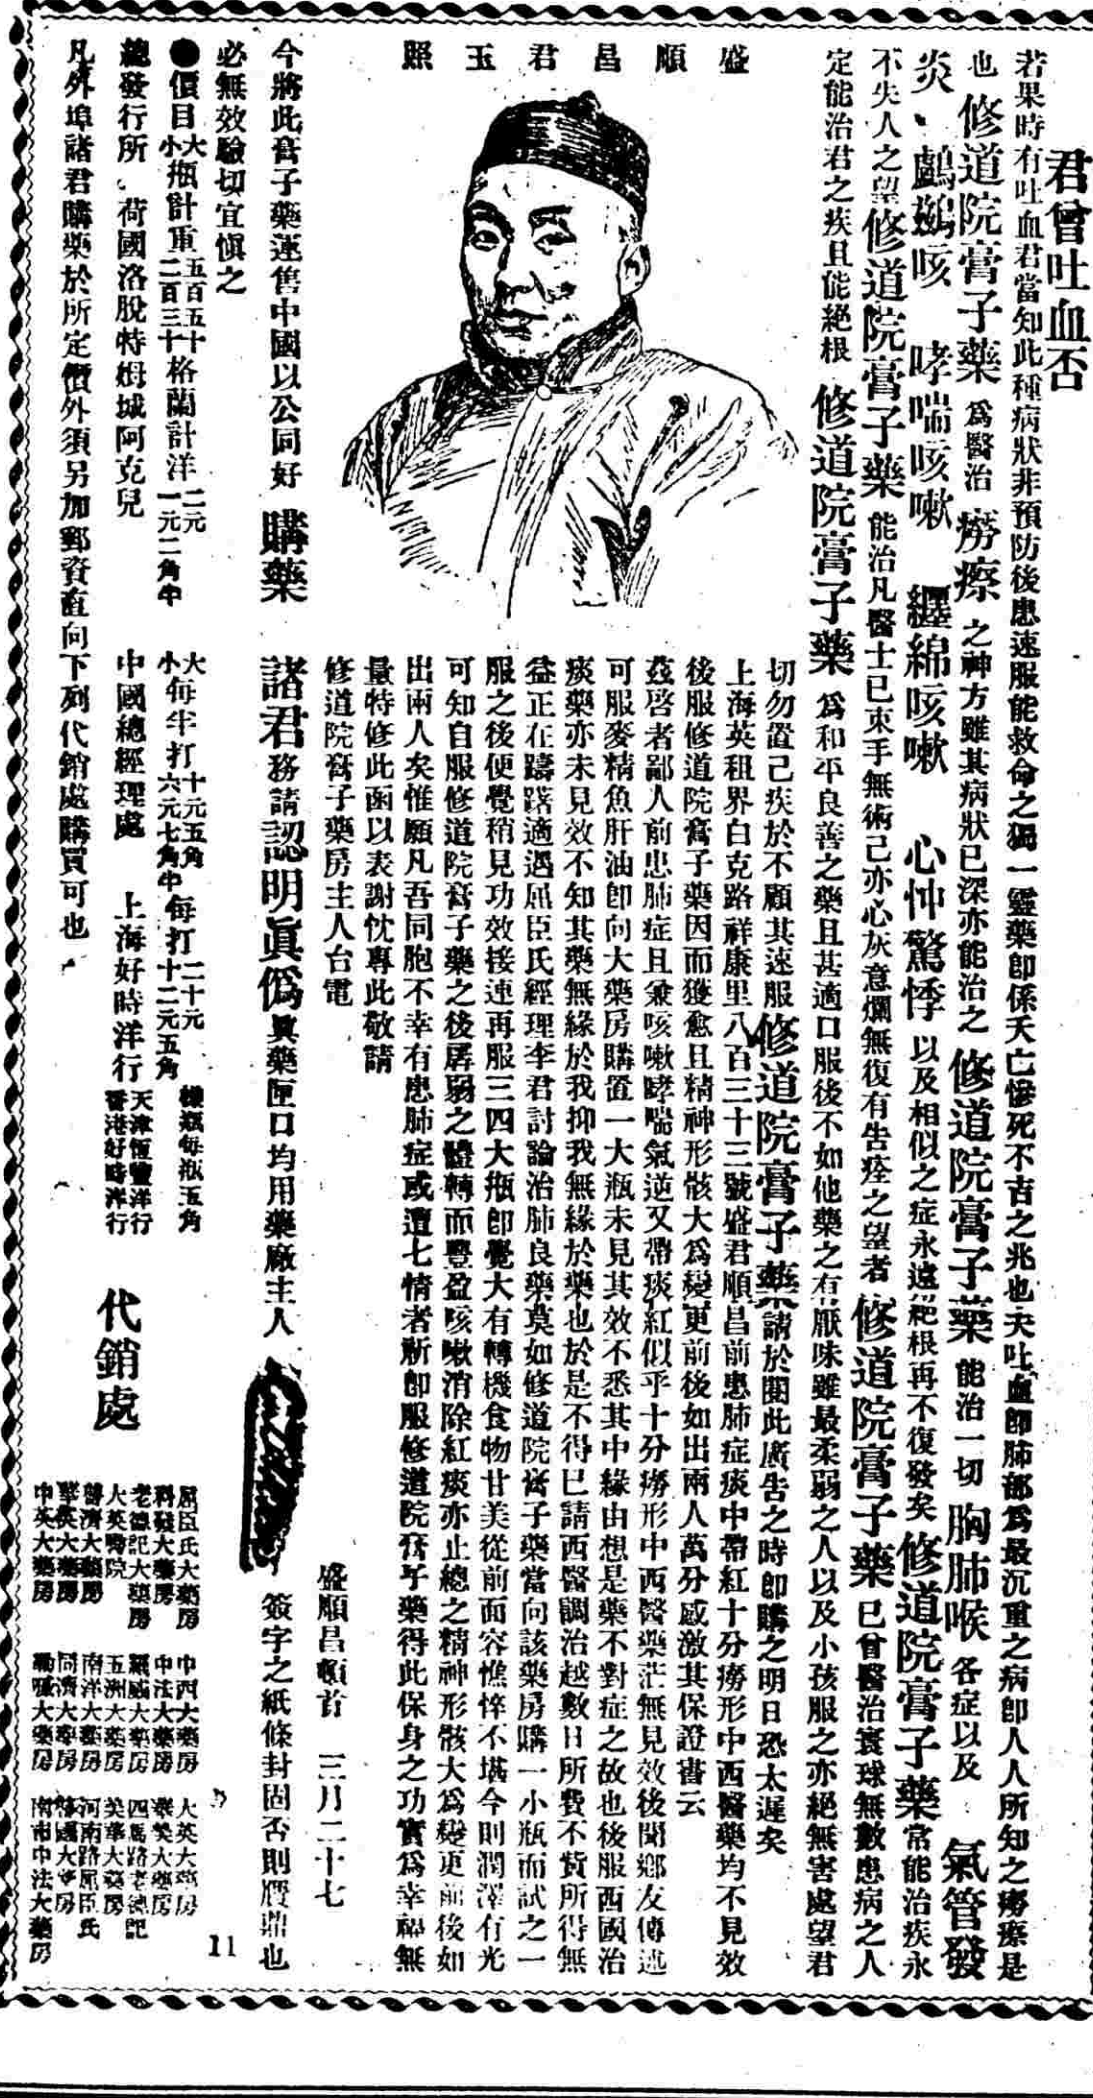 君曾吐血否
若果時有吐血君當知此種病狀非預防後患速服能救命之獨一靈藥卽係夭亡慘死不吉之兆也夫吐血卽肺部爲最沉重之病卽人人所知之癆瘵是
也 修道院膏子藥 爲醫治 癆瘵 之神方雖其病狀已深亦能治之 修道院膏子藥 能治一切 胸肺喉 各症以及 氣管發
炎 鸕鷀咳 哮喘咳嗽 纏綿咳嗽 心忡驚悸 以及相似之症永遠絕根再不復發矣 修道院膏子藥 常能治疾永
不失人之望 修道院膏子藥 能治凡醫士已束手無術己亦心灰意爛無復有吿痊之望者 修道院膏子藥 已曾醫治寰球無數患病之人
定能治君之疾且能絕根 修道院膏子藥 爲和平良善之藥且甚適口服後不如他藥之有厭味雖最柔弱之人以及小孩服之亦絕無害處望君
切勿置己疾於不顧其速服 修道院膏子藥 請於閱此廣吿之時卽購之明日恐太遲矣
盛順昌君玉照
上海英租界白克路祥康里八百三十三號盛君順昌前患肺症痰中帶紅十分癆形中西醫藥均不見效
後服修道院膏子藥因而獲愈且精神形骸大爲變更前後如出兩人萬分感激其保證書云
茲啓者鄙人前患肺症且兼咳嗽哮喘氣逆又帶痰紅似乎十分癆形中西醫藥茫無見效後聞鄉友傳述
可服麥精魚肝油卽向大藥房購置一大瓶未見其效不悉其中緣由想是藥不對症之故也後服西國治
痰藥亦未見效不知其藥無緣於我抑我無緣於藥也於是不得已請西醫調治越數日所費不貲所得無
益正在躊躇適遇屈臣氏經理李君討論治肺良藥莫如修道院膏子藥當向該藥房購一小瓶而試之一
服之後便覺稍見功效接連再服三四大瓶卽覺大有轉機食物甘美從前面容憔悴不堪今則潤澤有光
可知自服修道院膏子藥之後孱弱之體轉而豐盈咳嗽消除紅痰亦止總之精神形骸大爲變更前後如
出兩人矣惟願凡吾同胞不幸有患肺症或遭七情者新卽服修道院膏子藥得此保身之功實爲幸福無
量特修此函以表謝忱專此敬請
修道院膏子藥房主人台電
盛順昌頓首 三月二十七
今將此膏子藥運售中國以公同好 購藥 諸君 務請 認明眞僞 眞藥匣口均用藥廠主人 簽字之紙條封固否則贋鼎也
必無效驗切宜愼之
●價目 大瓶計重五百五十格蘭計洋二元 大每半打十元五角 每打二十元
小瓶計重二百三十格蘭計洋一元二角半 小每半打六元七角半 每打十二元五角
樣瓶每瓶五角
總發行所 荷國洛脫特姆城阿克兒 中國總經理處 上海好時洋行
天津恆豐洋行
香港好時洋行
凡外埠諸君購藥於所定價外須另加郵資直向下列代銷處購買可也
代銷處
屈臣氏大藥房 中西大藥房 大英大藥房
科發大藥房 中法大藥房 華美大藥房
老德記大藥房 威大藥房 四馬路老德記
大英醫院 五洲大藥房 美華大藥房
濟大藥房 南洋大藥房 河南路屈臣氏
華英大藥房 同濟大藥房 大藥房
中英大藥房 大藥房 南市中法大藥房
11